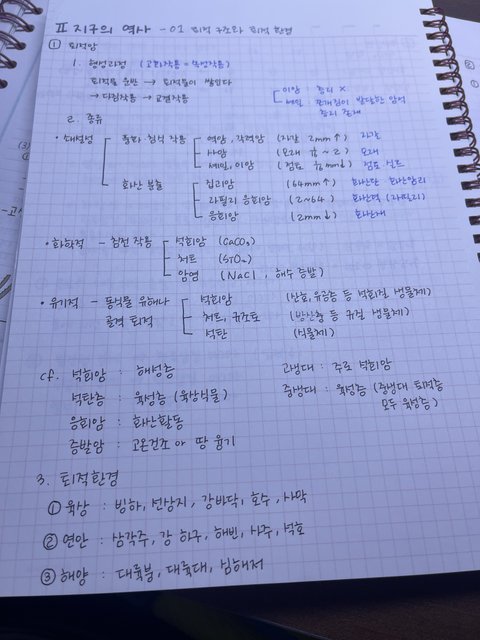 Ⅱ 지구의 역사 - 01 퇴적 구조와 퇴적 환경
① 퇴적암
1. 형성과정 (고화작용 = 속성작용)
퇴적물 운반 → 퇴적물이 쌓인다
→ 다짐작용 → 교결작용
이암 : 층리 X
셰일 : 쪼개짐이 발달한 암석
층리 존재
2. 종류
• 쇄설성
풍화 침식 작용
역암, 각력암 (자갈 2mm↑) 자갈
사암 (모래 1/16 ~ 2) 모래
셰일, 이암 (점토 1/16 mm↓) 점토 실트
화산 분출
집괴암 (64mm↑) 화산탄 화산암괴
라필리 응회암 (2~64) 화산력 (라필리)
응회암 (2mm↓) 화산재
• 화학적 - 침전 작용
석회암 (CaCO₃)
처트 (SiO₂)
암염 (NaCl, 해수 증발)
• 유기적 - 동식물 유해나
골격 퇴적
석회암 (산호, 유공충 등 석회질 생물체)
처트, 규조토 (방산충 등 규질 생물체)
석탄 (식물체)
cf. 석회암 : 해성층
석탄층 : 육성층 (육상식물)
응회암 : 화산활동
증발암 : 고온건조
고생대 : 주로 석회암
중생대 : 육성층 (중생대 퇴적층
모두 육성층)
3. 퇴적환경
① 육상 : 빙하, 선상지, 강바닥, 호수, 사막
② 연안 : 삼각주, 강 하구, 해빈, 사주, 석호
③ 해양 : 대륙붕, 대륙대, 심해저